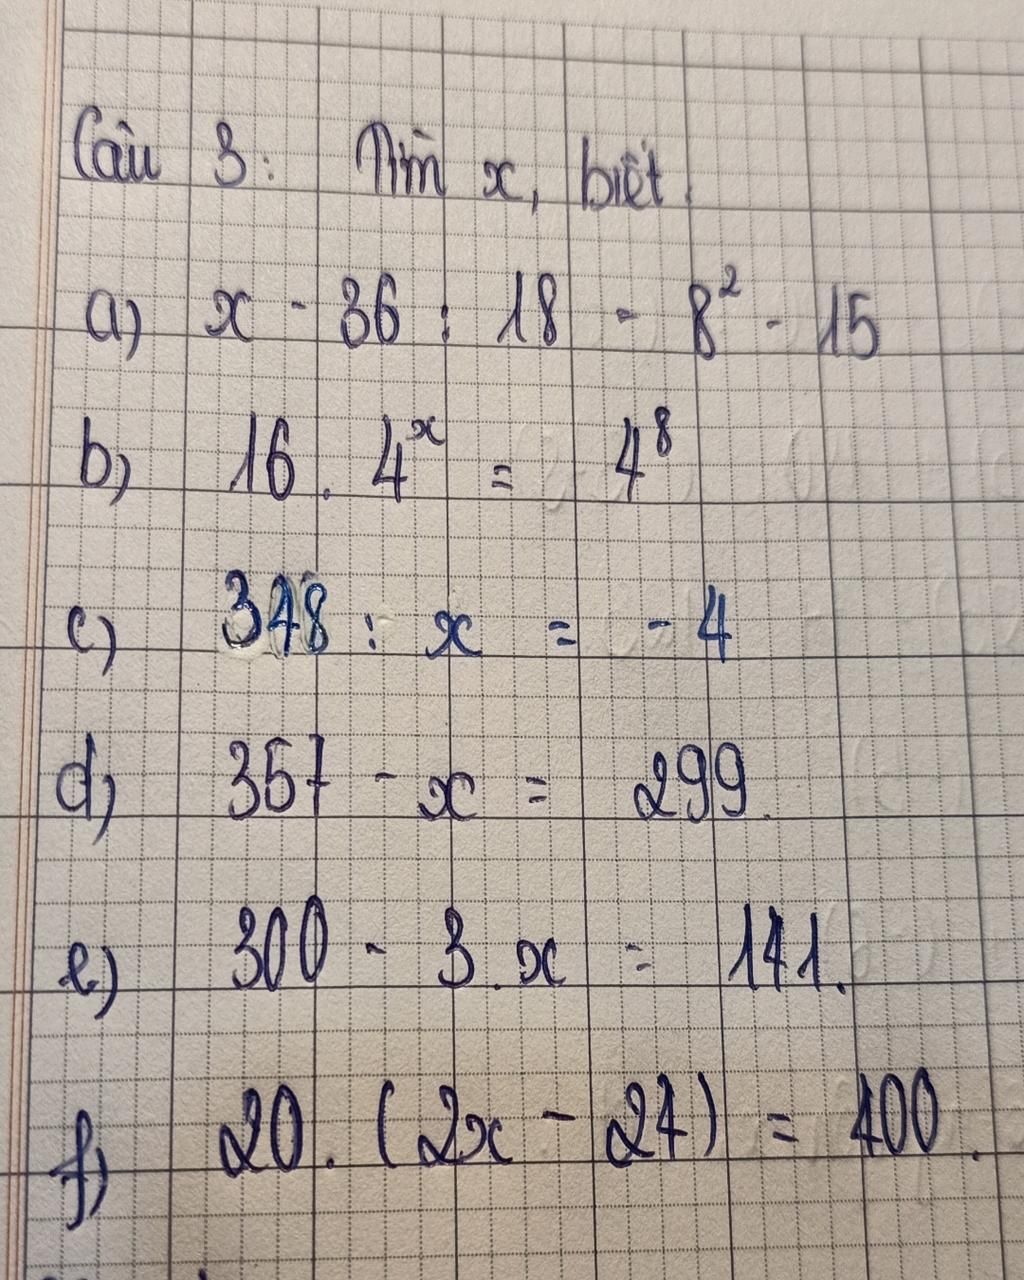 Câu 3: Tìm x, biết.
a) x - 36 : 18 = 8² - 15
b) 16 . 4ˣ = 4⁸
c) 348 : x = - 4
d) 357 - x = 299.
e) 300 - 3 . x = 141.
f) 20 . (2x - 24) = 400.